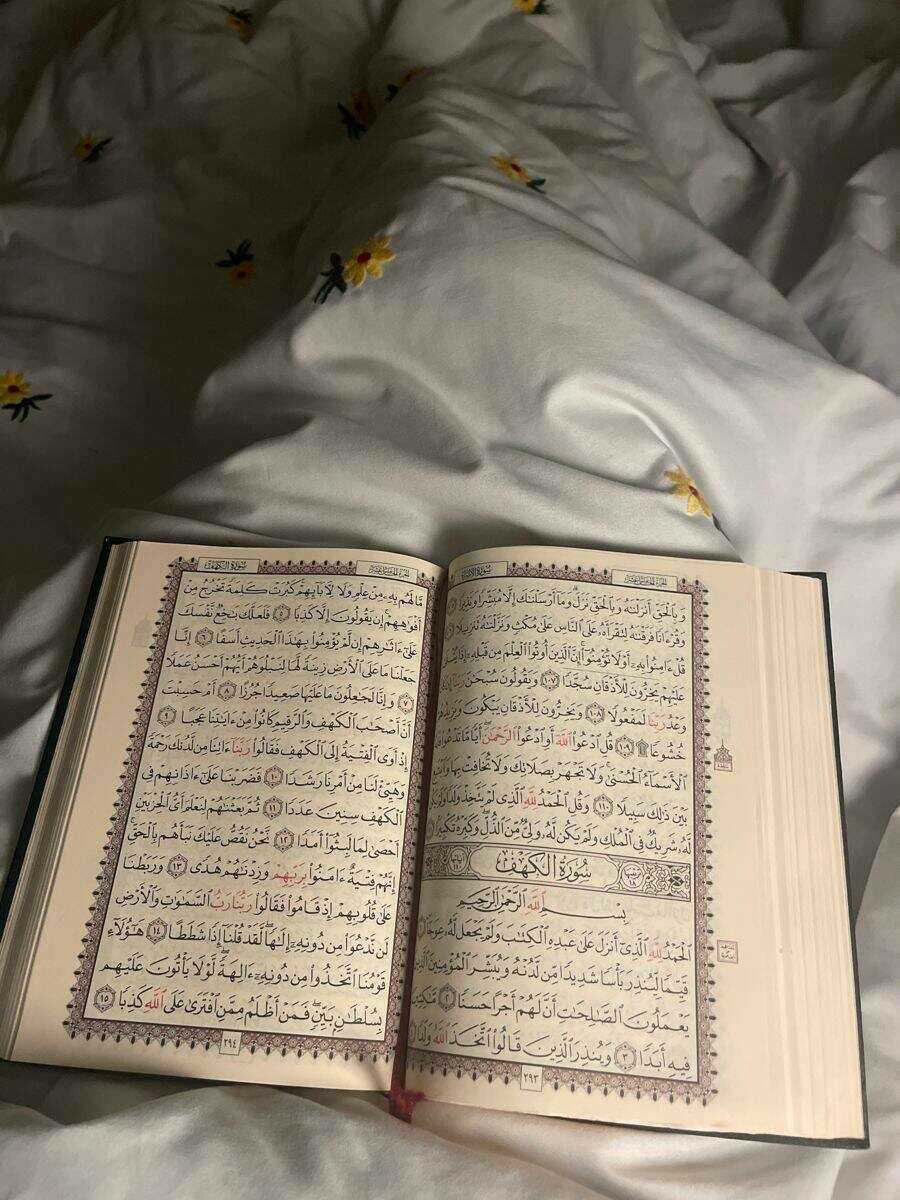 سورة الإسراء
وَبِٱلْحَقِّ أَنزَلْنَٰهُ وَبِٱلْحَقِّ نَزَلَ وَمَآ أَرْسَلْنَٰكَ إِلَّا مُبَشِّرًا وَنَذِيرًا
وَقُرْءَانًا فَرَقْنَٰهُ لِتَقْرَأَهُۥ عَلَى ٱلنَّاسِ عَلَىٰ مُكْثٍ وَنَزَّلْنَٰهُ تَنزِيلًا
قُلْ ءَامِنُوا۟ بِهِۦٓ أَوْ لَا تُؤْمِنُوٓا۟ إِنَّ ٱلَّذِينَ أُوتُوا۟ ٱلْعِلْمَ مِن قَبْلِهِۦٓ إِذَا يُتْلَىٰ
عَلَيْهِمْ يَخِرُّونَ لِلْأَذْقَانِ سُجَّدًا ١٠٧ وَيَقُولُونَ سُبْحَٰنَ رَبِّنَآ إِن كَانَ
وَعْدُ رَبِّنَا لَمَفْعُولًا ١٠٨ وَيَخِرُّونَ لِلْأَذْقَانِ يَبْكُونَ وَيَزِيدُهُمْ
خُشُوعًا ۩ ١٠٩ قُلِ ٱدْعُوا۟ ٱللَّهَ أَوِ ٱدْعُوا۟ ٱلرَّحْمَٰنَ أَيًّا مَّا تَدْعُوا۟ فَلَهُ
ٱلْأَسْمَآءُ ٱلْحُسْنَىٰ وَلَا تَجْهَرْ بِصَلَاتِكَ وَلَا تُخَافِتْ بِهَا وَٱبْتَغِ
بَيْنَ ذَٰلِكَ سَبِيلًا ١١٠ وَقُلِ ٱلْحَمْدُ لِلَّهِ ٱلَّذِى لَمْ يَتَّخِذْ وَلَدًا وَلَمْ يَكُن
لَّهُۥ شَرِيكٌ فِى ٱلْمُلْكِ وَلَمْ يَكُن لَّهُۥ وَلِىٌّ مِّنَ ٱلذُّلِّ وَكَبِّرْهُ تَكْبِيرًۢا
سُورَةُ الكَهْفِ
بِسْمِ ٱللَّهِ ٱلرَّحْمَٰنِ ٱلرَّحِيمِ
ٱلْحَمْدُ لِلَّهِ ٱلَّذِىٓ أَنزَلَ عَلَىٰ عَبْدِهِ ٱلْكِتَٰبَ وَلَمْ يَجْعَل لَّهُۥ عِوَجَا
قَيِّمًا لِّيُنذِرَ بَأْسًا شَدِيدًا مِّن لَّدُنْهُ وَيُبَشِّرَ ٱلْمُؤْمِنِينَ ٱلَّذِينَ
يَعْمَلُونَ ٱلصَّٰلِحَٰتِ أَنَّ لَهُمْ أَجْرًا حَسَنًا ٢ مَّٰكِثِينَ
فِيهِ أَبَدًا ٣ وَيُنذِرَ ٱلَّذِينَ قَالُوا۟ ٱتَّخَذَ ٱللَّهُ وَلَدًا
٢٩٣
سورة الكهف
مَّا لَهُم بِهِۦ مِنْ عِلْمٍ وَلَا لِءَابَآئِهِمْ كَبُرَتْ كَلِمَةً تَخْرُجُ مِنْ
أَفْوَٰهِهِمْ إِن يَقُولُونَ إِلَّا كَذِبًا ٥ فَلَعَلَّكَ بَٰخِعٌ نَّفْسَكَ
عَلَىٰٓ ءَاثَٰرِهِمْ إِن لَّمْ يُؤْمِنُوا۟ بِهَٰذَا ٱلْحَدِيثِ أَسَفًا ٦ إِنَّا
جَعَلْنَا مَا عَلَى ٱلْأَرْضِ زِينَةً لَّهَا لِنَبْلُوَهُمْ أَيُّهُمْ أَحْسَنُ عَمَلًا
٧ وَإِنَّا لَجَٰعِلُونَ مَا عَلَيْهَا صَعِيدًا جُرُزًا ٨ أَمْ حَسِبْتَ
أَنَّ أَصْحَٰبَ ٱلْكَهْفِ وَٱلرَّقِيمِ كَانُوا۟ مِنْ ءَايَٰتِنَا عَجَبًا ٩
إِذْ أَوَى ٱلْفِتْيَةُ إِلَى ٱلْكَهْفِ فَقَالُوا۟ رَبَّنَآ ءَاتِنَا مِن لَّدُنكَ رَحْمَةً
وَهَيِّئْ لَنَا مِنْ أَمْرِنَا رَشَدًا ١٠ فَضَرَبْنَا عَلَىٰٓ ءَاذَانِهِمْ فِى
ٱلْكَهْفِ سِنِينَ عَدَدًا ١١ ثُمَّ بَعَثْنَٰهُمْ لِنَعْلَمَ أَىُّ ٱلْحِزْبَيْنِ
أَحْصَىٰ لِمَا لَبِثُوٓا۟ أَمَدًا ١٢ نَّحْنُ نَقُصُّ عَلَيْكَ نَبَأَهُم بِٱلْحَقِّ
إِنَّهُمْ فِتْيَةٌ ءَامَنُوا۟ بِرَبِّهِمْ وَزِدْنَٰهُمْ هُدًى ١٣ وَرَبَطْنَا
عَلَىٰ قُلُوبِهِمْ إِذْ قَامُوا۟ فَقَالُوا۟ رَبُّنَا رَبُّ ٱلسَّمَٰوَٰتِ وَٱلْأَرْضِ
لَن نَّدْعُوَا۟ مِن دُونِهِۦٓ إِلَٰهًا لَّقَدْ قُلْنَآ إِذًا شَطَطًا ١٤ هَٰٓؤُلَآءِ
قَوْمُنَا ٱتَّخَذُوا۟ مِن دُونِهِۦٓ ءَالِهَةً لَّوْلَا يَأْتُونَ عَلَيْهِم
بِسُلْطَٰنٍۭ بَيِّنٍ فَمَنْ أَظْلَمُ مِمَّنِ ٱفْتَرَىٰ عَلَى ٱللَّهِ كَذِبًا ١٥
٢٩٤